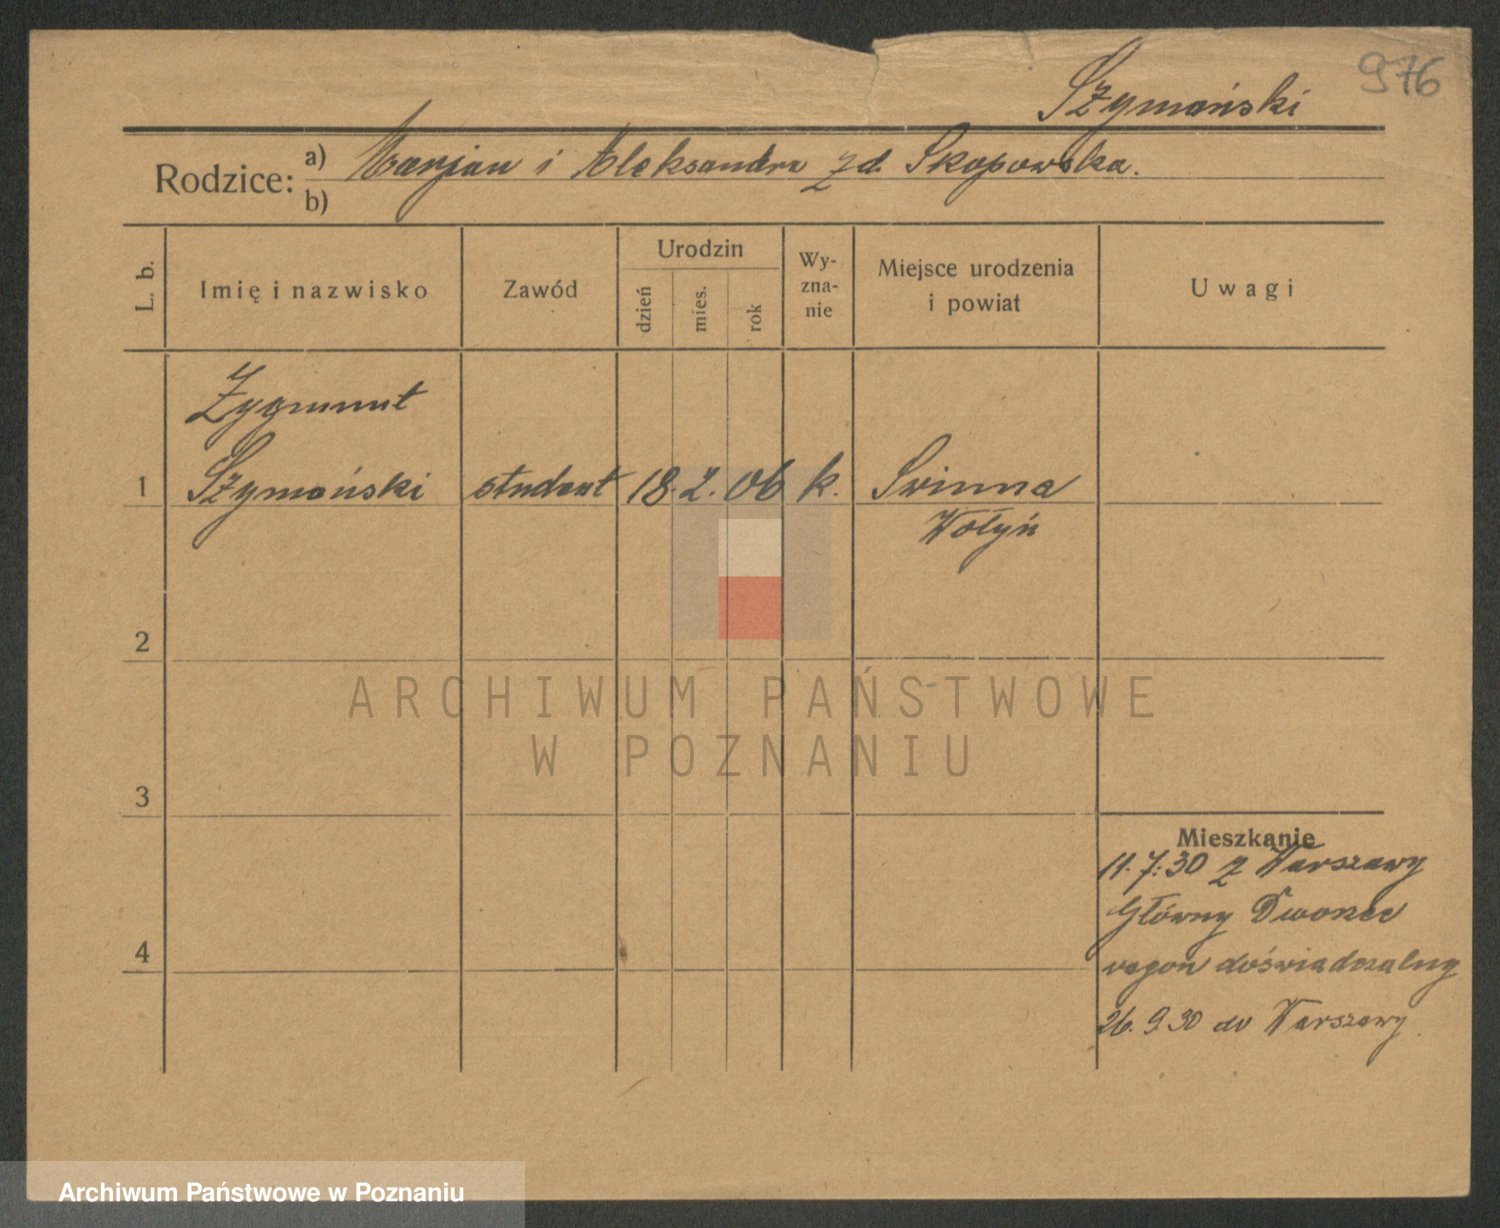 976
Szymański
Rodzice: a) Marjan i Aleksandra zd. Skopowska.
b)
L. b.
Imię i nazwisko
Zawód
Urodzin
dzień
mies.
rok
Wy-
zna-
nie
Miejsce urodzenia
i powiat
Uwagi
Zygmunt
1 Szymański student 18. 2. 06 k. Swinna
Wołyń
2
3
4
Mieszkanie
11. 7. 30 z Warszawy
Główny Dworzec
wagon doświadczalny
26. 9. 30 do Warszawy
ARCHIWUM PAŃSTWOWE
W POZNANIU
Archiwum Państwowe w Poznaniu